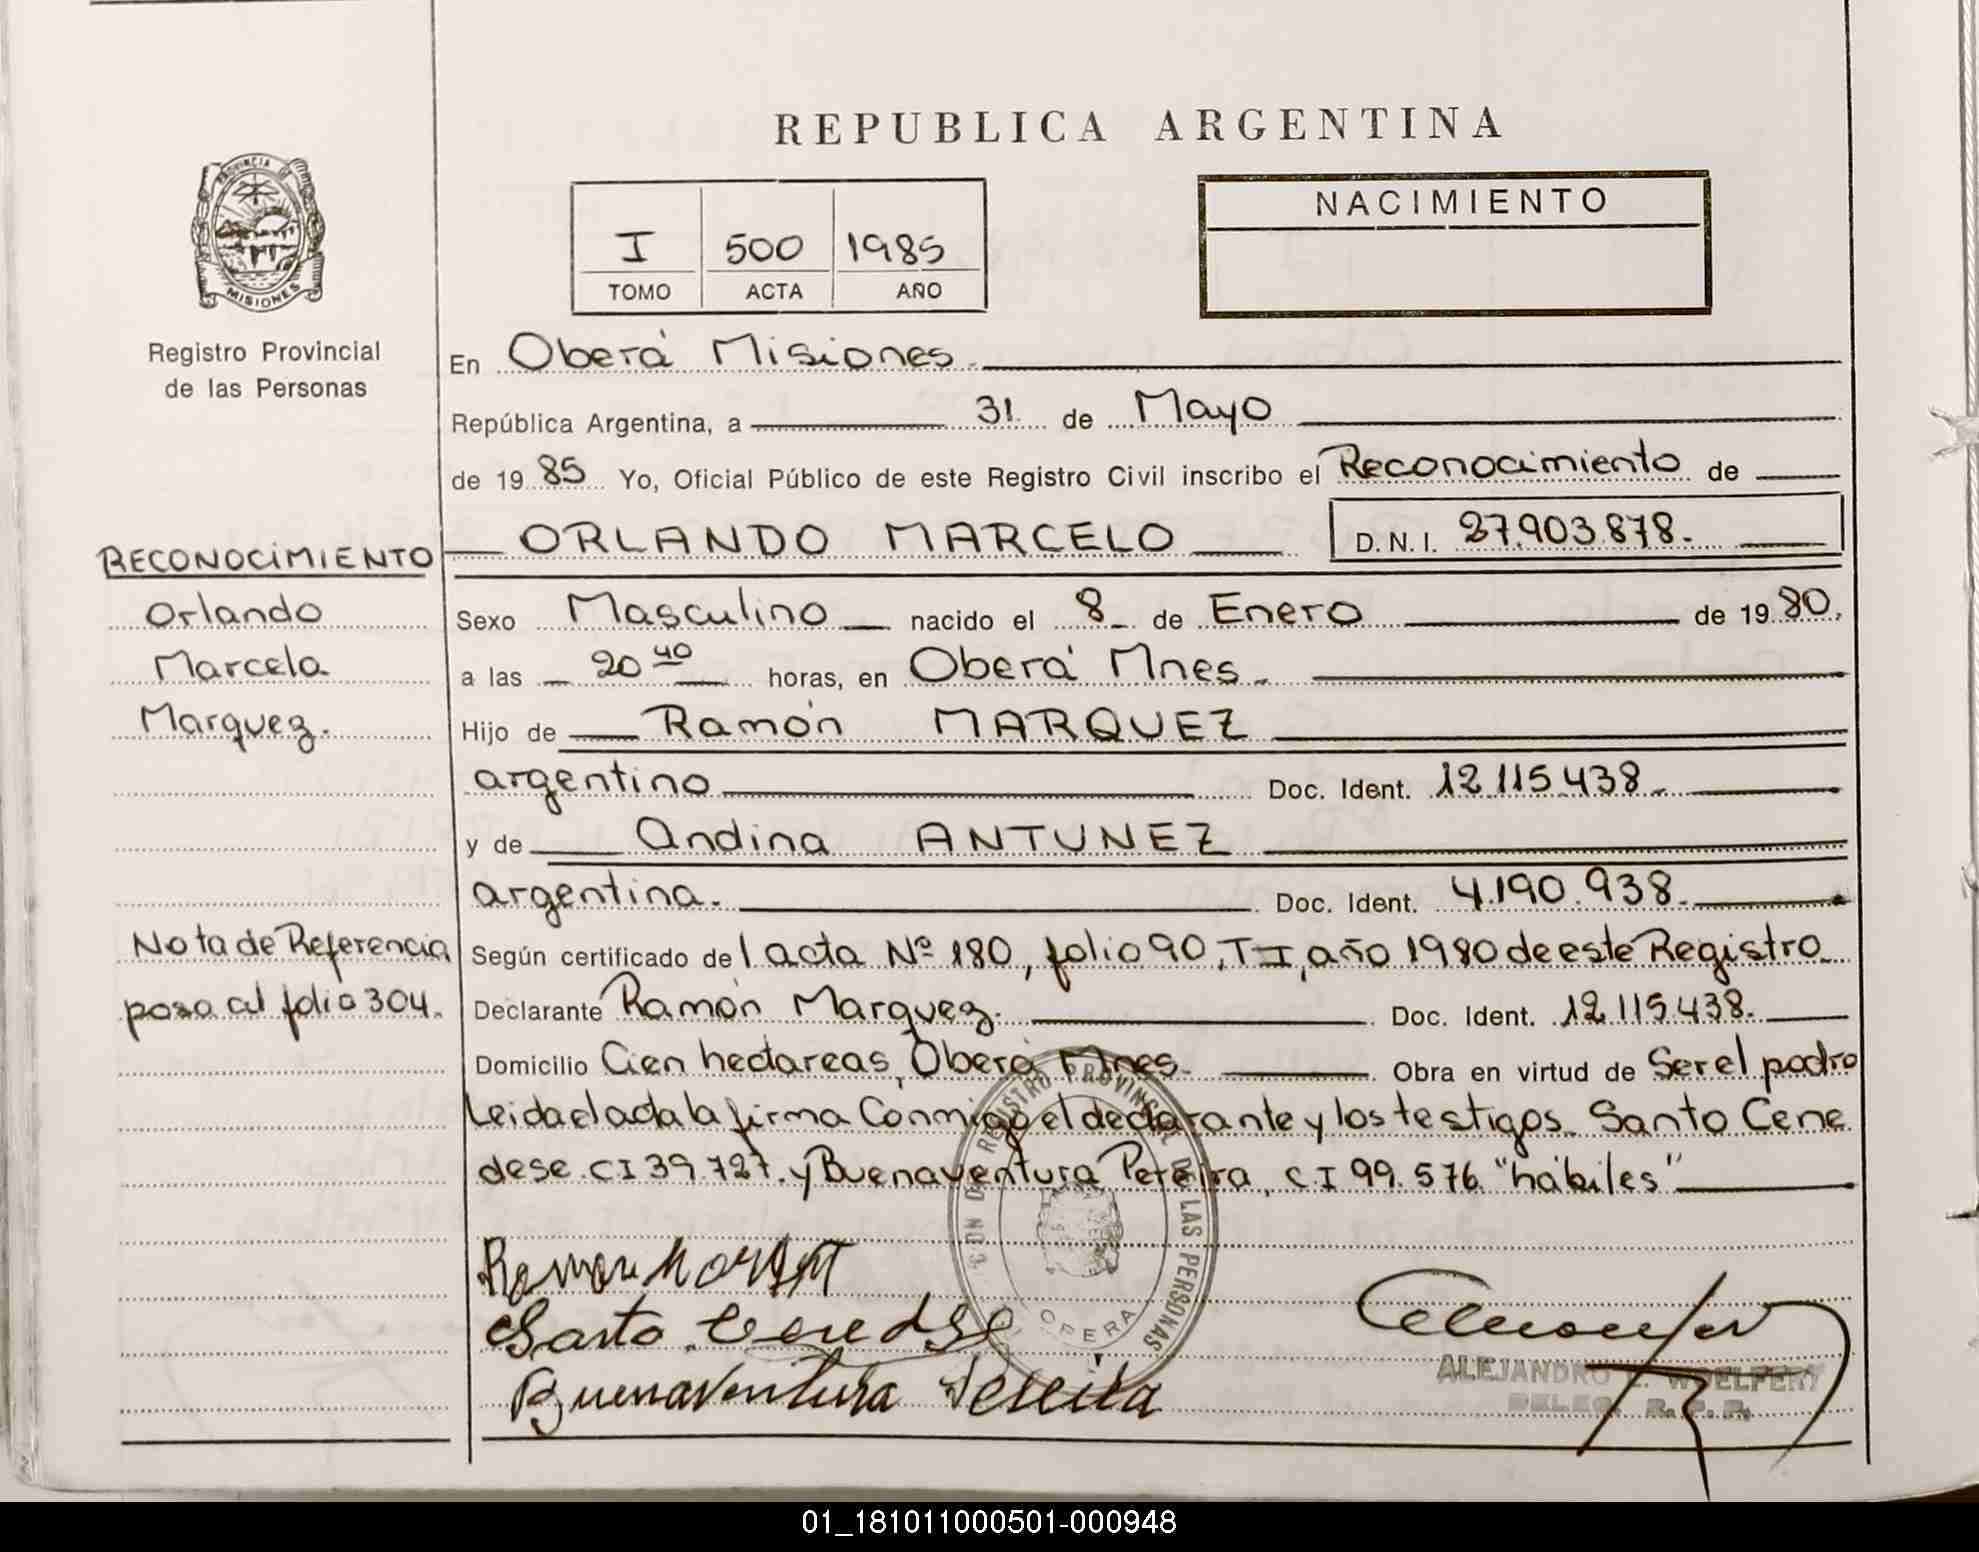 REPUBLICA ARGENTINA
PROVINCIA DE
MISIONES
Registro Provincial
de las Personas
I 500 1985
TOMO ACTA AÑO
NACIMIENTO
En Oberá Misiones.
República Argentina, a 31 de Mayo
de 19 85 Yo, Oficial Público de este Registro Civil inscribo el Reconocimiento de
ORLANDO MARCELO D.N.I. 27.903.878.
RECONOCIMIENTO
Orlando
Marcela
Marquez.
Sexo Masculino nacido el 8 de Enero de 19 80.
a las 20 40 horas, en Oberá Mnes.
Hijo de Ramón MARQUEZ
argentino Doc. Ident. 12.115.438.
y de Andina ANTUNEZ
argentina. Doc. Ident. 4.190.938.
Nota de Referencia
pasa al folio 304.
Según certificado de l acta Nº 180, folio 90, T I, año 1980 de este Registro
Declarante Ramón Marquez. Doc. Ident. 12.115.438.
Domicilio Cien hectareas, Oberá Mnes. Obra en virtud de Ser el padre
Leida el acta la firma Conmigo el declarante y los testigos Santo Cene
dese CI 39.727. y Buenaventura Pereira, CI 99.576 "hábiles"
REGISTRO PROVINCIAL DE LAS PERSONAS
OBERA
Ramon
Santo Cenedese
Buenaventura Pereira
ALEJANDRO
DELEG. R. P. P.
01_181011000501-000948